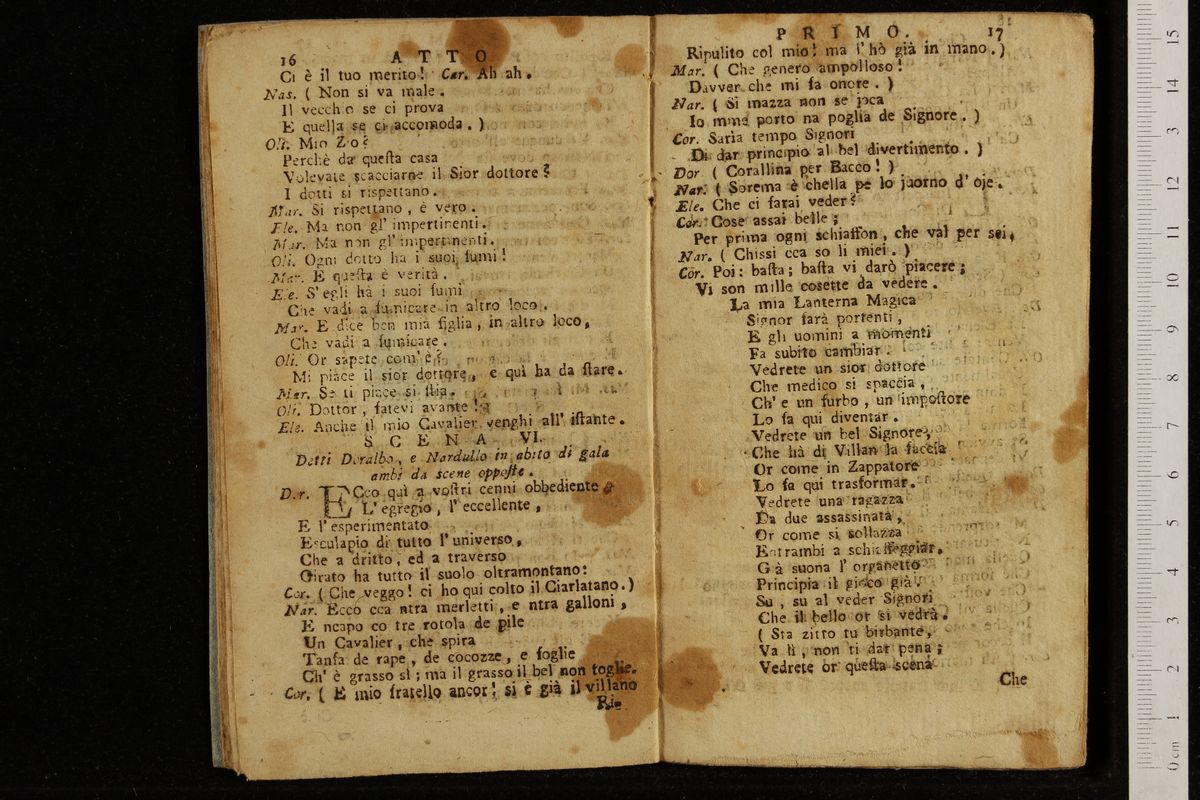 16 ATTO
Ci è il tuo merito! Car. Ah ah.
Nas. ( Non si va male.
Il vecchio se ci prova
E quella se ci accomoda. )
Oli. Mio Zio?
Perchè da questa casa
Volevate scacciarne il Sior dottore?
I dotti si rispettano.
Mar. Si rispettano, è vero.
Ele. Ma non gl' impertinenti.
Mar. Ma non gl' impertinenti.
Oli. Ogni dotto ha i suoi fumi!
Mar. E questa è verità.
Ele. S' egli hà i suoi fumi
Che vadi a fumicare in altro loco.
Mar. E dice ben mia figlia, in altro loco,
Che vadi a fumicare.
Oli. Or sapete com' è?
Mi piace il sior dottore, e quì ha da stare.
Mar. Se ti piace si stia.
Oli. Dottor, fatevi avante!
Ele. Anche il mio Cavalier venghi all' istante.
SCENA VI.
Detti Doralbo, e Nardullo in abito di gala
ambi da scene opposte.
Dor. ECco quì a vostri cenni obbediente
L' egregio, l' eccellente,
E l' esperimentato
Esculapio di tutto l' universo,
Che a dritto, ed a traverso
Girato ha tutto il suolo oltramontano:
Cor. ( Che veggo! ci ho qui colto il Ciarlatano.)
Nar. Ecco cca ntra merletti, e ntra galloni,
E ncapo co tre rotola de pile
Un Cavalier, che spira
Tanfa de rape, de cocozze, e foglie
Ch' è grasso sì; ma il grasso il bel non toglie.
Cor. ( E mio fratello ancor! si è già il villano
Ri-
PRIMO. 17
Ripulito col mio! ma l' hò già in mano.)
Mar. ( Che genero ampolloso!
Davver che mi fa onore. )
Nar. ( Si mazza non se joca
Io mme porto na poglia de Signore. )
Cor. Saria tempo Signori
Di dar principio al bel divertimento. )
Dor ( Corallina per Bacco! )
Nar. ( Sorema è chella pe lo juorno d' oje.
Ele. Che ci farai veder?
Cor. Cose assai belle;
Per prima ogni schiaffon, che val per sei,
Nar. ( Chissi cca so li miei. )
Cor. Poi: basta; basta vi darò piacere;
Vi son mille cosette da vedere.
La mia Lanterna Magica
Signor farà portenti,
E gli uomini a momenti
Fa subito cambiar.
Vedrete un sior dottore
Che medico si spaccia,
Ch' e un furbo, un impostore
Lo fa qui diventar.
Vedrete un bel Signore,
Che hà di Villan la faccia
Or come in Zappatore
Lo fa qui trasformar.
Vedrete una ragazza
Da due assassinata,
Or come si sollazza
Entrambi a schiaffeggiar.
Già suona l' organetto
Principia il gioco già.
Su, su al veder Signori
Che il bello or si vedrà.
( Sta zitto tu birbante,
Va lì, non ti dar pena;
Vedrete or questa scena
Che